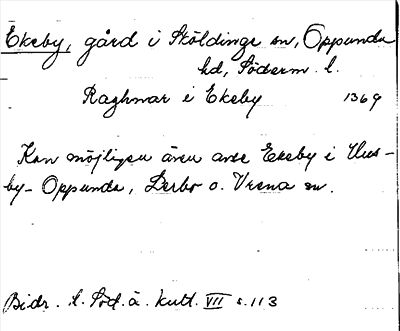 Ekeby, gård i Sköldinge sn, Oppunda
hd, Söderm. l.
Raghnar i Ekeby 1369
Kan möjligen även avse Ekeby i Hus-
by-Oppunda, Lerbo o. Vrena sn.
Bidr. t. Söd. ä. kult. VII s. 113